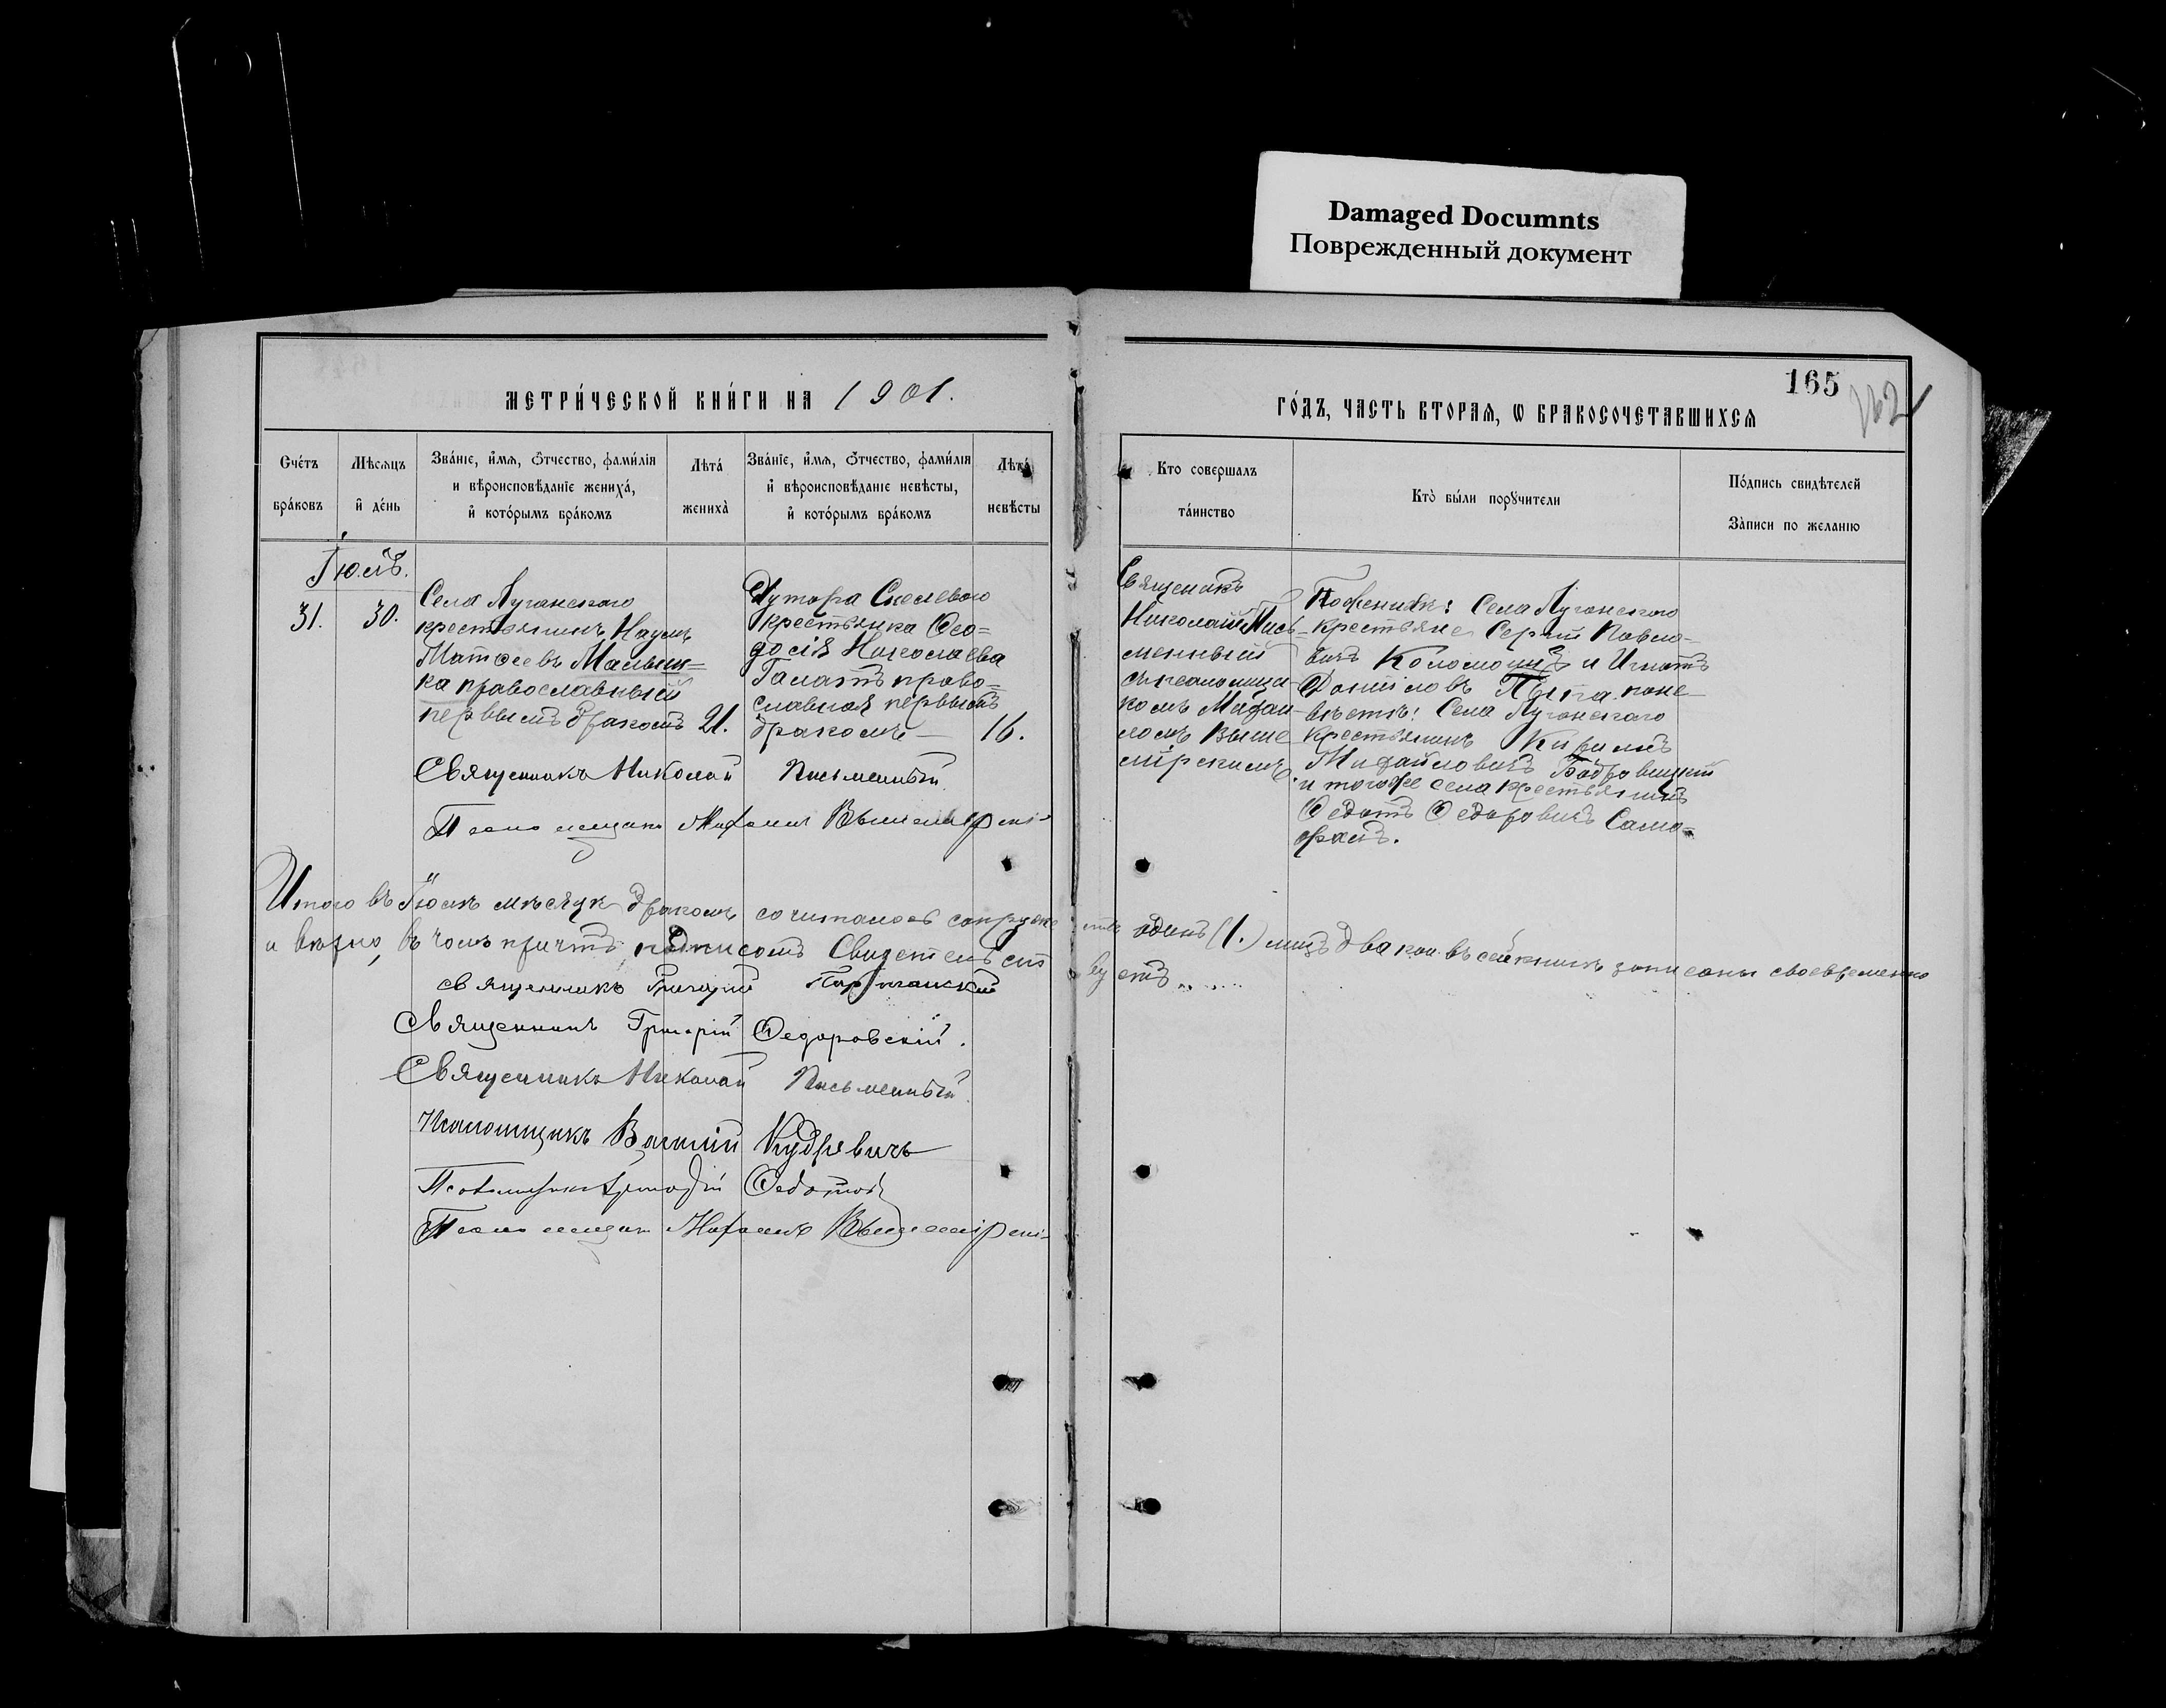 Damaged Documnts
Поврежденный документ
165
метри́ческой кни́ги на 1901.
го́дъ, часть вторая, ѡ бракосочетавшихся
Сче́тъ
бра́ковъ
Мѣсяцъ
и́ де́нь
Зва́нїе, и́мя, ѻ҆́тчество, фами́лїя
и вѣроисповѣданїе жениха́,
и҆ кото́рымъ бра́комъ
Лѣта́
жениха̀
Зва́нїе, и́мя, ѻ҆́тчество, фами́лїя
и҆ вѣроисповѣданїе невѣсты,
и҆ кото́рымъ бра́комъ
Лѣта́
невѣсты
Кто совершалъ
та́инство
Кто̀ бы́ли порꙋчители
По́дпись свидѣтелей
За̀писи по желанїю
Іюль.
31.
30.
Села Луганскаго
крестьянинъ Наумъ
Матѳеевъ Малыш=
ка православный
первымъ бракомъ
21.
Хутора Скелеваго
крестьянка Ѳео=
досія Николаева
Галатъ право=
славная первымъ
бракомъ —
16.
Священикъ
Николай Пись-
менный
съ псаломщи-
комъ Михаи-
ломъ Выше
мірскимъ
По женихѣ: Села Луганскаго
крестьяне Сергій Павло-
вичъ и Игнатъ
Даниловъ по не-
вѣстѣ: Села Луганскаго
крестьянинъ Кирилъ
Михайловичъ
и тогоже села крестьянинъ
Ѳедотъ Ѳедоровичъ Само-
Священникъ Николай Письменный
Псаломщикъ Михаилъ Вышемірскі
Итого въ Іюлѣ мѣсяцѣ бракомъ сочиталось супруже ствъ одинъ (1.) лицъ два кои въ сей книгѣ записаны своевременно
и вѣрно, въ чемъ причтъ подписомъ Свидетельст вуетъ.....
священникъ Григорій
Священникъ Григорій Ѳедоровскій.
Священникъ Николай Письменный.
Псаломщикъ Василій Кудревичъ
Псаломщикъ Ѳедотов
Псаломщикъ Михаилъ Вышемірскі